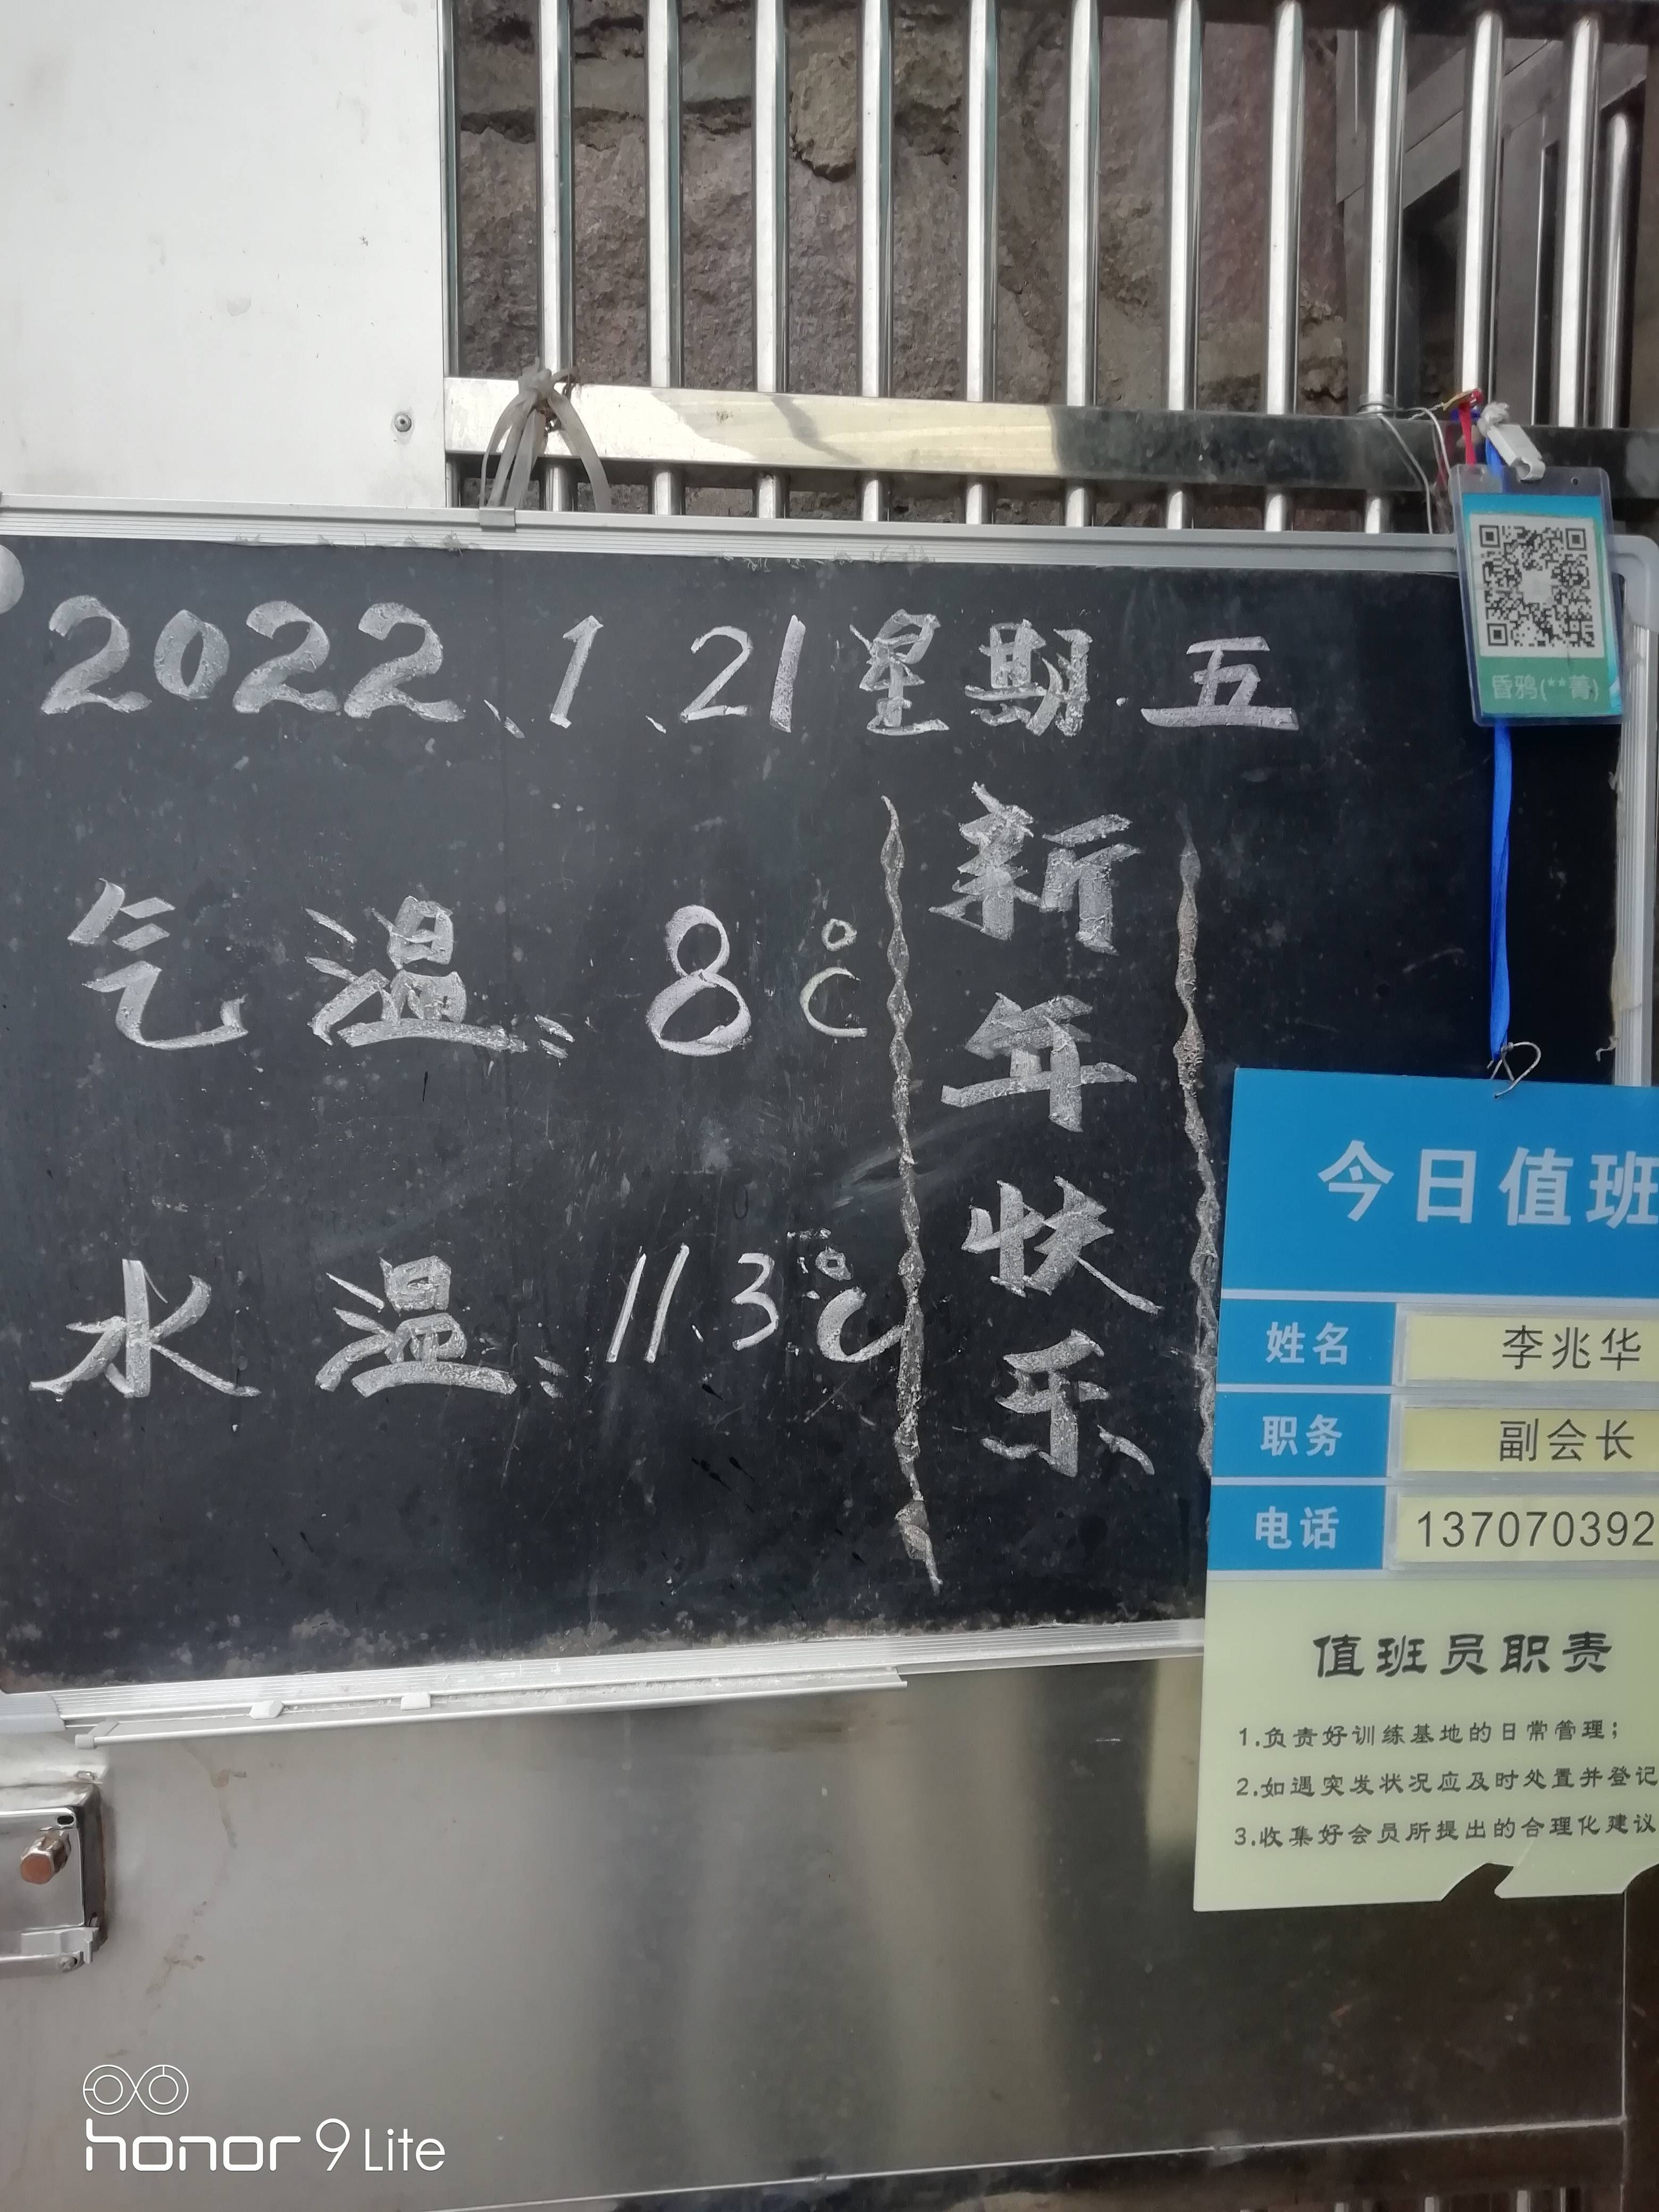 2022、1、21星期五
气温：8℃
水温：11.3℃
新年快乐
昏鸦(**菁)
今日值班
姓名 李兆华
职务 副会长
电话 137070392
值班员职责
1.负责好训练基地的日常管理；
2.如遇突发状况应及时处置并登记
3.收集好会员所提出的合理化建议
honor 9 Lite